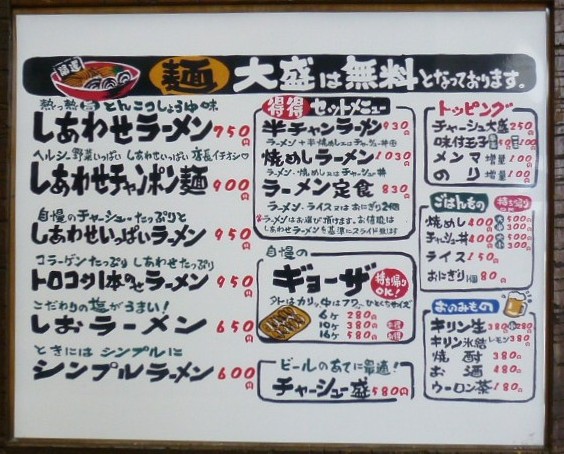 麺 大盛は無料となっております。
熱っ熱旨とんこつしょうゆ味
しあわせラーメン 750円
ヘルシー野菜いっぱい しあわせいっぱい 店長イチオシ♡
しあわせチャンポン麺 900円
自慢のチャーシューたっぷりと
しあわせいっぱいラーメン 950円
コラーゲンたっぷり しあわせたっぷり
トロコツ1本のせラーメン 950円
こだわりの塩がうまい!
しおラーメン 650円
ときには シンプルに
シンプルラーメン 600円
得得 セットメニュー
半チャンラーメン 930円
ラーメン+半焼めし又はチャーシュー丼
焼めしラーメン 1030円
ラーメン・焼めし又はチャーシュー丼
ラーメン定食 830円
ラーメン・ライス又はおにぎり2個
ラーメンはお選び頂けます。お値段は
しあわせラーメンを基準にスライド致します
自慢の
ギョーザ
持ち帰りOK!
ソトはカリッ 中はフワッ ひとくちサイズ
6ケ 280円
10ケ 380円
16ケ 580円
ビールのあてに最適!
チャーシュー盛 580円
トッピング
チャーシュー大盛 250円
味付玉子 100円
メンマ 増量 100円
のり 増量 100円
ごはんもの 持ち帰りOK
焼めし 400円 大 500円 小 300円
チャーシュー丼 400円 大 500円 小 300円
ライス 150円
おにぎり 1個 80円
おのみもの
キリン生 380円
キリン氷結 レモン 380円
焼酎 380円
お酒 480円
ウーロン茶 180円